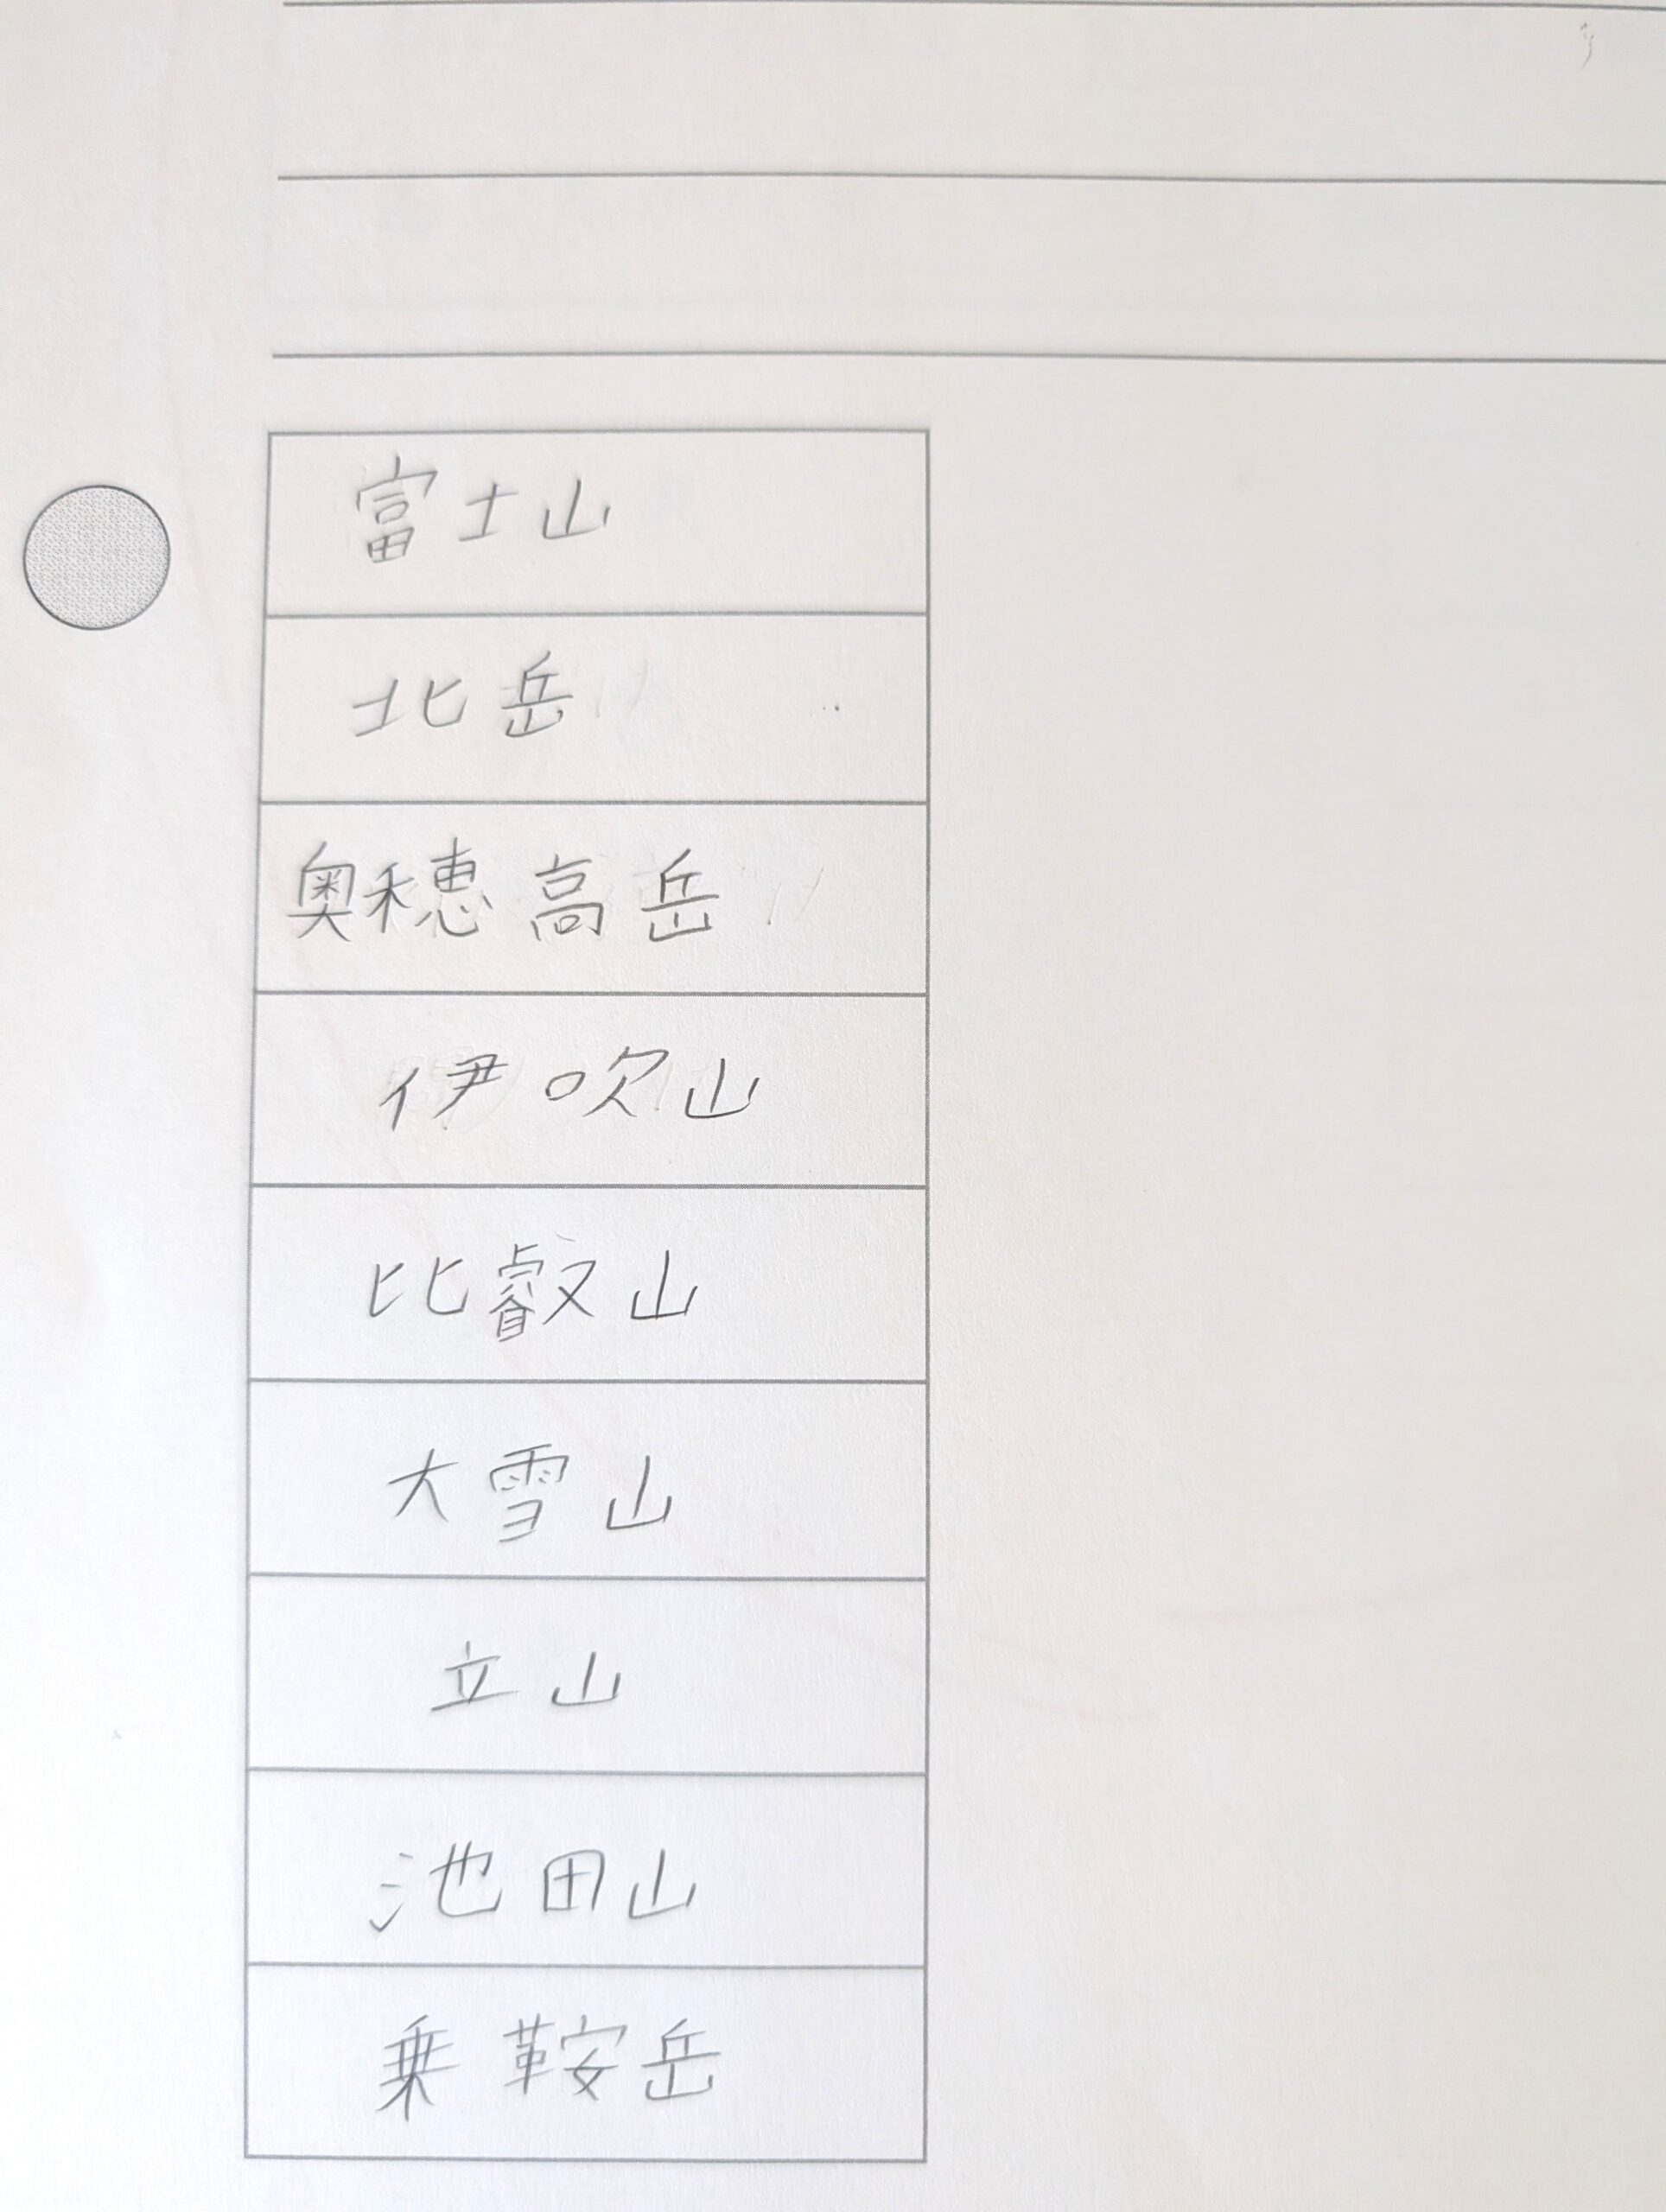 富士山
北岳
奥穂高岳
伊吹山
比叡山
大雪山
立山
池田山
乗鞍岳